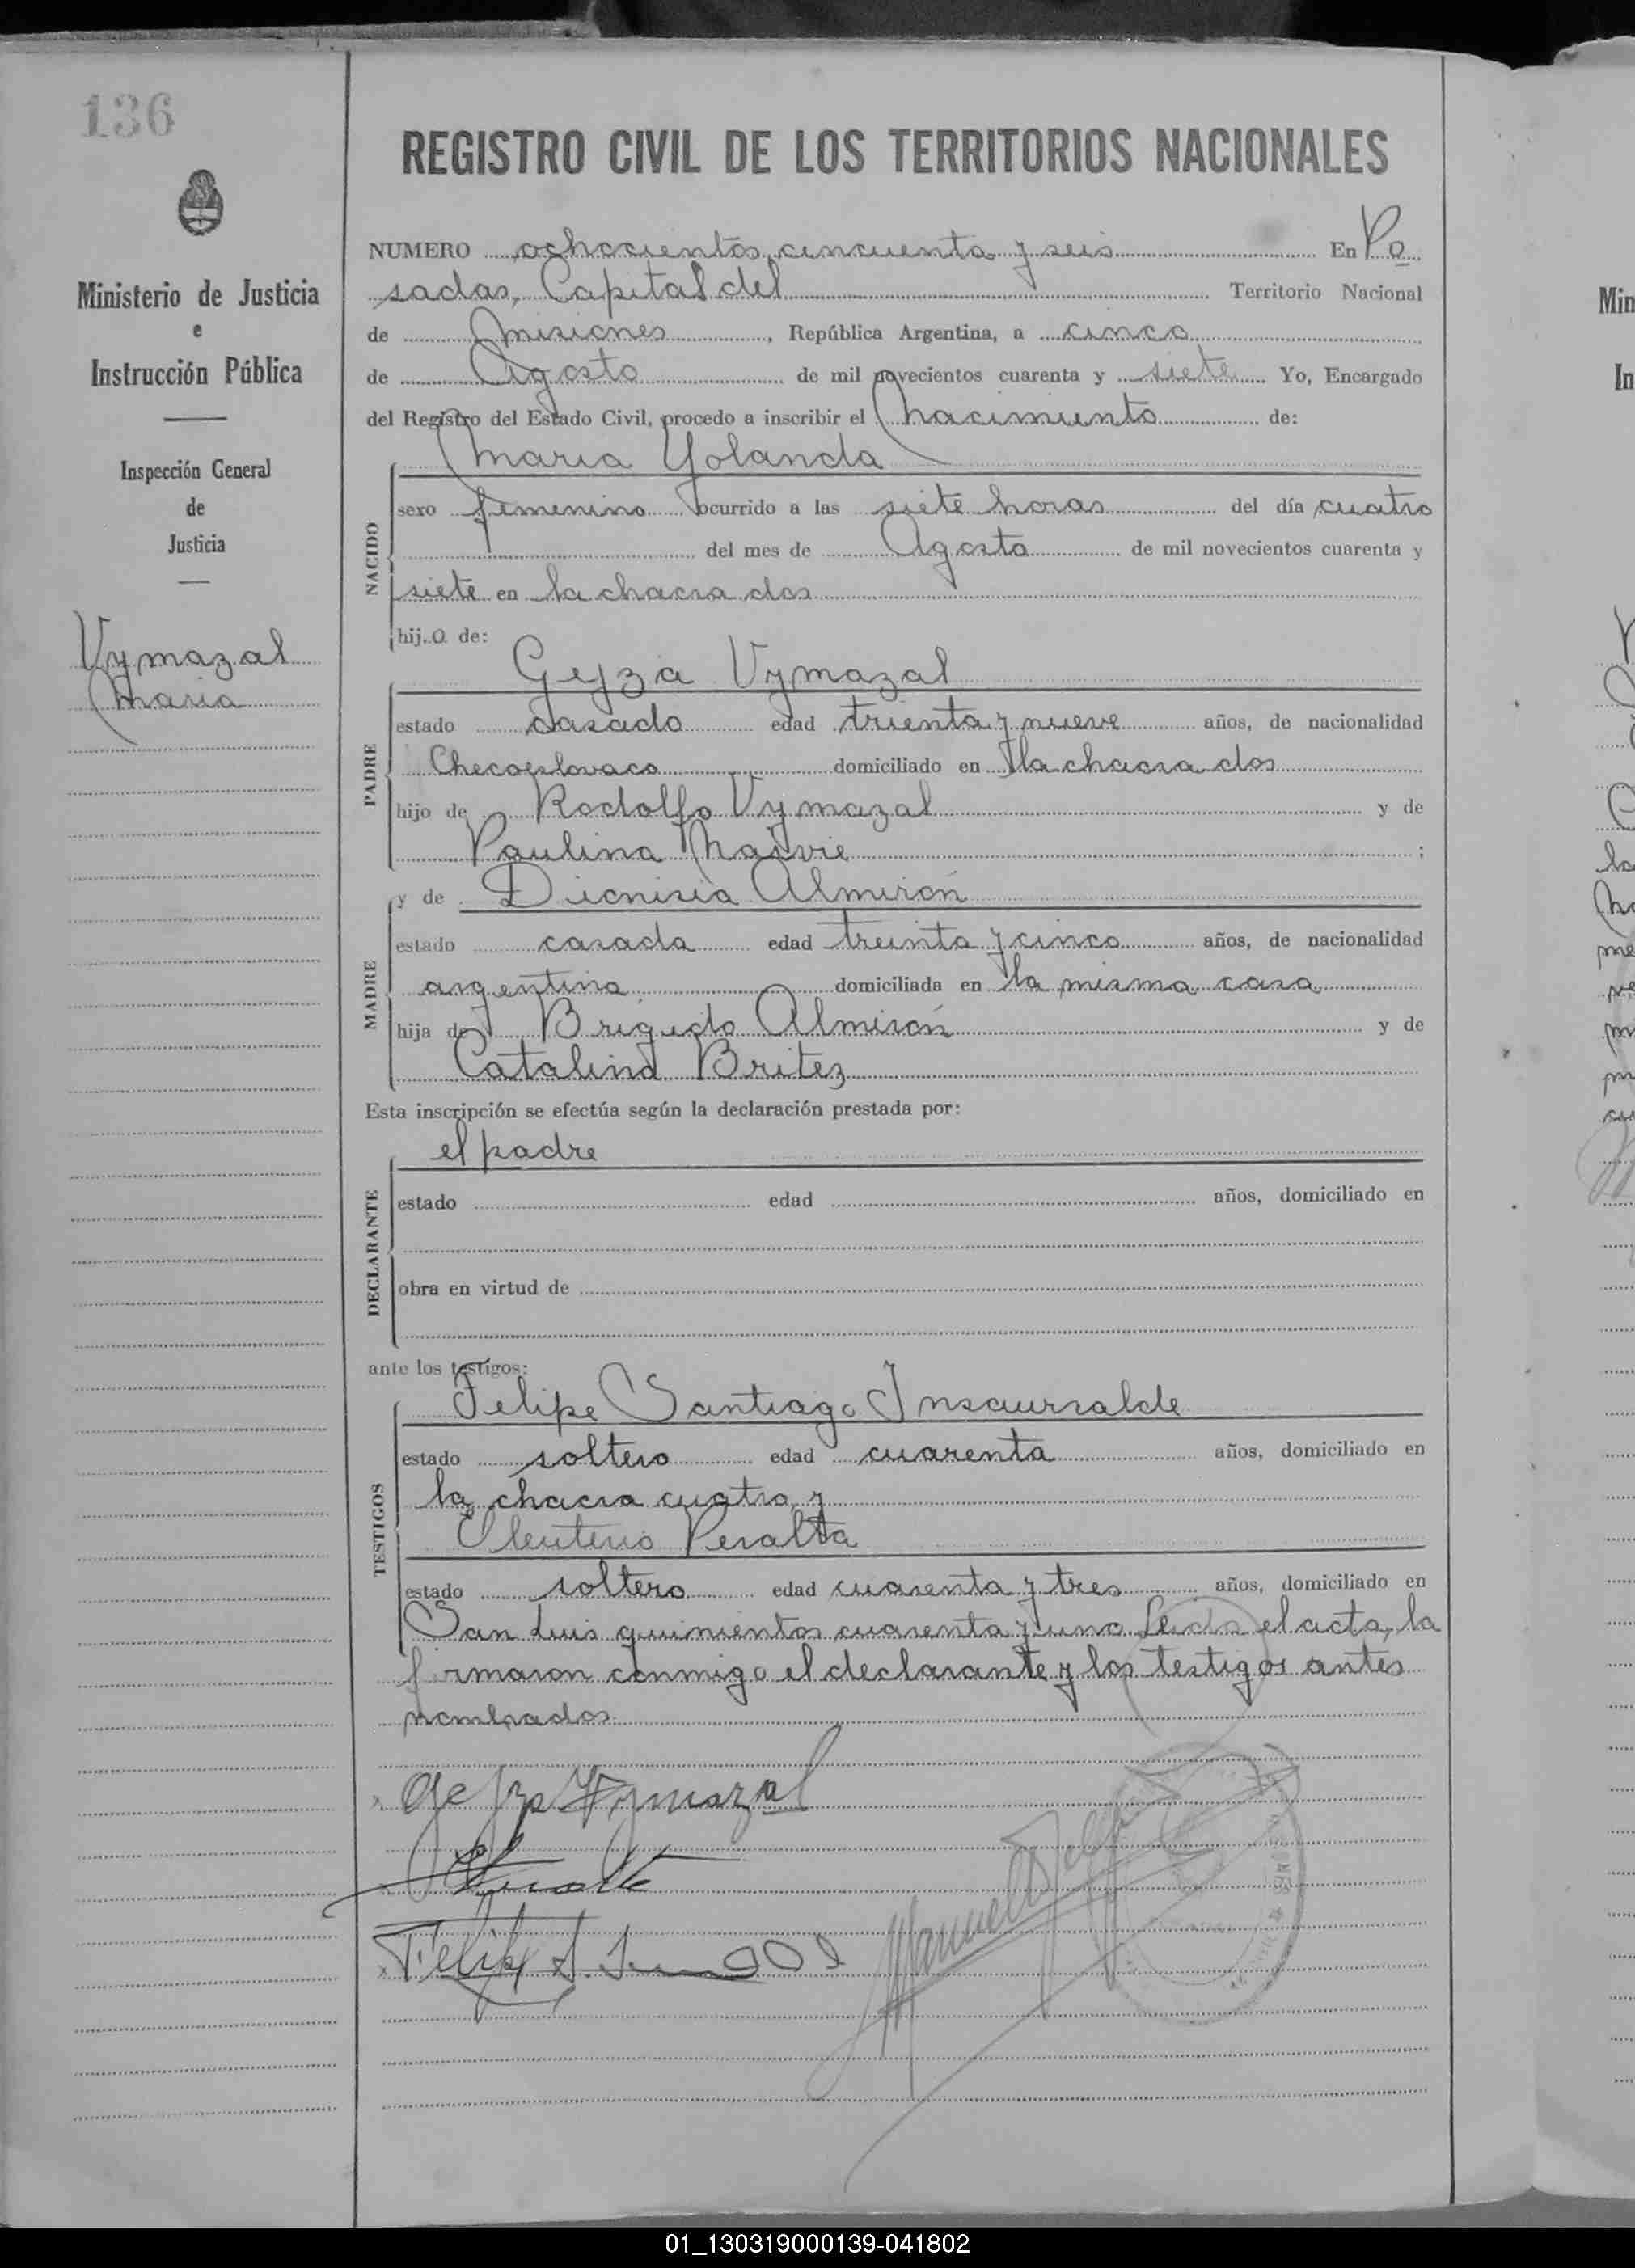 136
REGISTRO CIVIL DE LOS TERRITORIOS NACIONALES
Ministerio de Justicia
e
Instrucción Pública
Inspección General
de
Justicia
Vymazal
Maria
NUMERO ochocientos cincuenta y seis En Po
sadas, Capital del Territorio Nacional
de Misiones, República Argentina, a cinco
de Agosto de mil novecientos cuarenta y siete Yo, Encargado
del Registro del Estado Civil, procedo a inscribir el Nacimiento de:
Maria Yolanda
NACIDO
sexo femenino ocurrido a las siete horas del día cuatro
del mes de Agosto de mil novecientos cuarenta y
siete en la chacra dos
hij.a de:
Geyza Vymazal
PADRE
estado casado edad trienta y nueve años, de nacionalidad
Checoeslovaco domiciliado en la chacra dos
hijo de Rodolfo Vymazal y de
Paulina ;
y de Dionisia Almirón
MADRE
estado casada edad treinta y cinco años, de nacionalidad
argentina domiciliada en la misma casa
hija de Brigido Almirón y de
Catalina Britez
Esta inscripción se efectúa según la declaración prestada por:
el padre
DECLARANTE
estado edad años, domiciliado en
obra en virtud de
ante los testigos:
Felipe Santiago Insaurralde
TESTIGOS
estado soltero edad cuarenta años, domiciliado en
la chacra cuatro y
Eleuterio Peralta
estado soltero edad cuarenta y tres años, domiciliado en
San Luis quinientos cuarenta y uno Leida el acta, la
firmaron conmigo el declarante y los testigos antes
nombrados
Gejza Vymazal
Felipe S.
Manuel
01_130319000139-041802